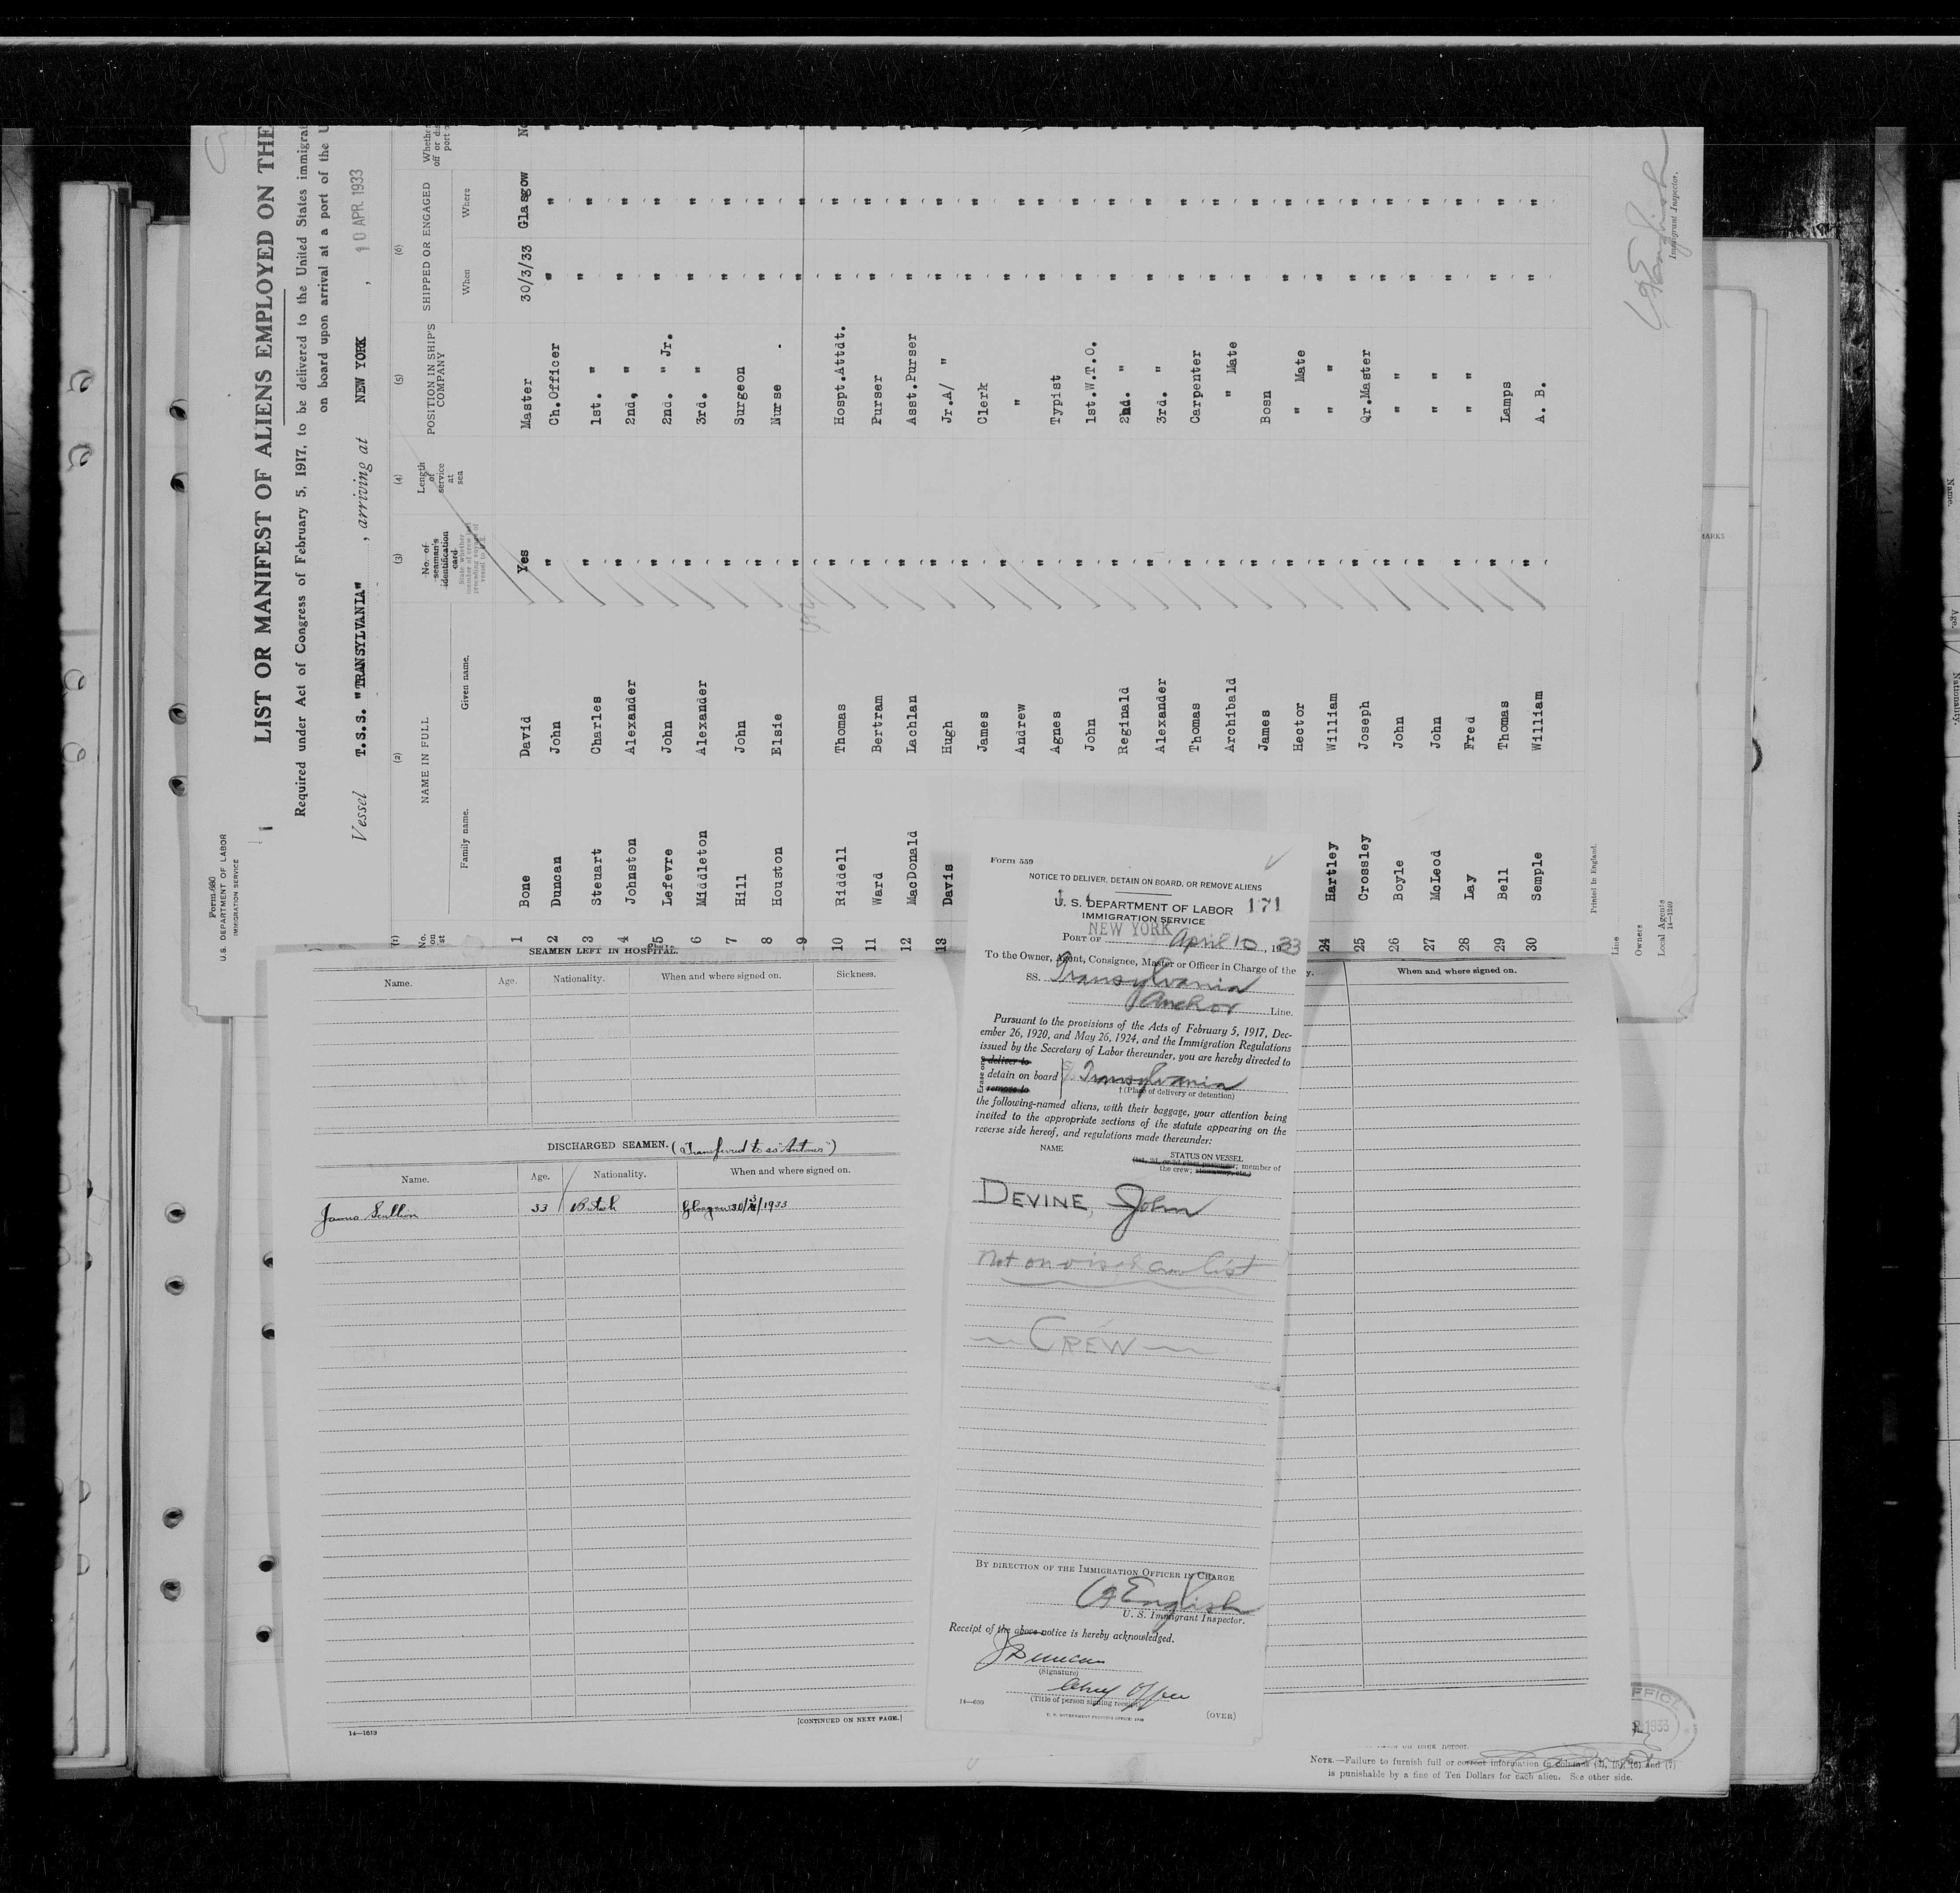 Form 680
U. S. DEPARTMENT OF LABOR
IMMIGRATION SERVICE
LIST OR MANIFEST OF ALIENS EMPLOYED ON THE
Required under Act of Congress of February 5, 1917, to be delivered to the United States immigra
on board upon arrival at a port of the U
Vessel T.S.S. "TRANSYLVANIA", arriving at NEW YORK, 10 APR. 1933
(1) (2) (3) (4) (5) (6)
No. on st
NAME IN FULL
Family name. Given name.
No. of seaman's identification card
Length of service at sea
POSITION IN SHIP'S COMPANY
SHIPPED OR ENGAGED
When Where
Whether
off or dis
port o
1 Bone David Yes Master 30/3/33 Glasgow No
2 Duncan John " Ch.Officer " " "
3 Steuart Charles " 1st. " " " "
4 Johnston Alexander " 2nd. " " " "
5 Lefevre John " 2nd. " Jr. " " "
6 Middleton Alexander " 3rd. " " " "
7 Hill John " Surgeon " " "
8 Houston Elsie " Nurse " " "
9
10 Riddell Thomas " Hospt.Attdt. " " "
11 Ward Bertram " Purser " " "
12 MacDonald Lachlan " Asst.Purser " " "
13 Davis Hugh " Jr.A/ " " " "
James " Clerk " " "
Andrew " " " " "
Agnes " Typist " " "
John " 1st.W.T.O. " " "
Reginald " 2nd. " " " "
Alexander " 3rd. " " " "
Thomas " Carpenter " " "
Archibald " " Mate " " "
James " Bosn " " "
Hector " " Mate " " "
24 Hartley William " " " " " "
25 Crossley Joseph " Qr.Master " " "
26 Boyle John " " " " " "
27 McLeod John " " " " " "
28 Lay Fred " " " " " "
29 Bell Thomas " Lamps " " "
30 Semple William " A. B. " " "
Printed in England.
Line
Owners
Local Agents
14—1240
English
Immigrant Inspector.
SEAMEN LEFT IN HOSPITAL.
Name. Age. Nationality. When and where signed on. Sickness.
DISCHARGED SEAMEN. (Transferred to ss "Antinoe")
Name. Age. Nationality. When and where signed on.
James Scullion 33 British Glasgow 30/3/1933
[CONTINUED ON NEXT PAGE.]
14—1613
Form 559
NOTICE TO DELIVER, DETAIN ON BOARD, OR REMOVE ALIENS
U. S. DEPARTMENT OF LABOR 171
IMMIGRATION SERVICE
NEW YORK
PORT OF April 10, 1933
To the Owner, Agent, Consignee, Master or Officer in Charge of the
SS. Transylvania
Anchor Line.
Pursuant to the provisions of the Acts of February 5, 1917, Dec-
ember 26, 1920, and May 26, 1924, and the Immigration Regulations
issued by the Secretary of Labor thereunder, you are hereby directed to
Erase one
deliver to
detain on board S/S Transylvania
remove to
† (Place of delivery or detention)
the following-named aliens, with their baggage, your attention being
invited to the appropriate sections of the statute appearing on the
reverse side hereof, and regulations made thereunder:
NAME STATUS ON VESSEL
(1st, 2d, or 3d class passenger; member of
the crew; stowaway, etc.)
DEVINE, John
Not on visaed crew list
— CREW —
BY DIRECTION OF THE IMMIGRATION OFFICER IN CHARGE
English
U. S. Immigrant Inspector.
Receipt of the above notice is hereby acknowledged.
J Duncan
(Signature)
Chief Officer
(Title of person signing receipt)
14—600
U. S. GOVERNMENT PRINTING OFFICE
(OVER)
y.
When and where signed on.
ARKS
1933
on back hereof.
NOTE.—Failure to furnish full or correct information in columns (4), (5), (6) and (7)
is punishable by a fine of Ten Dollars for each alien. See other side.
Name.
Age.
Nationality.